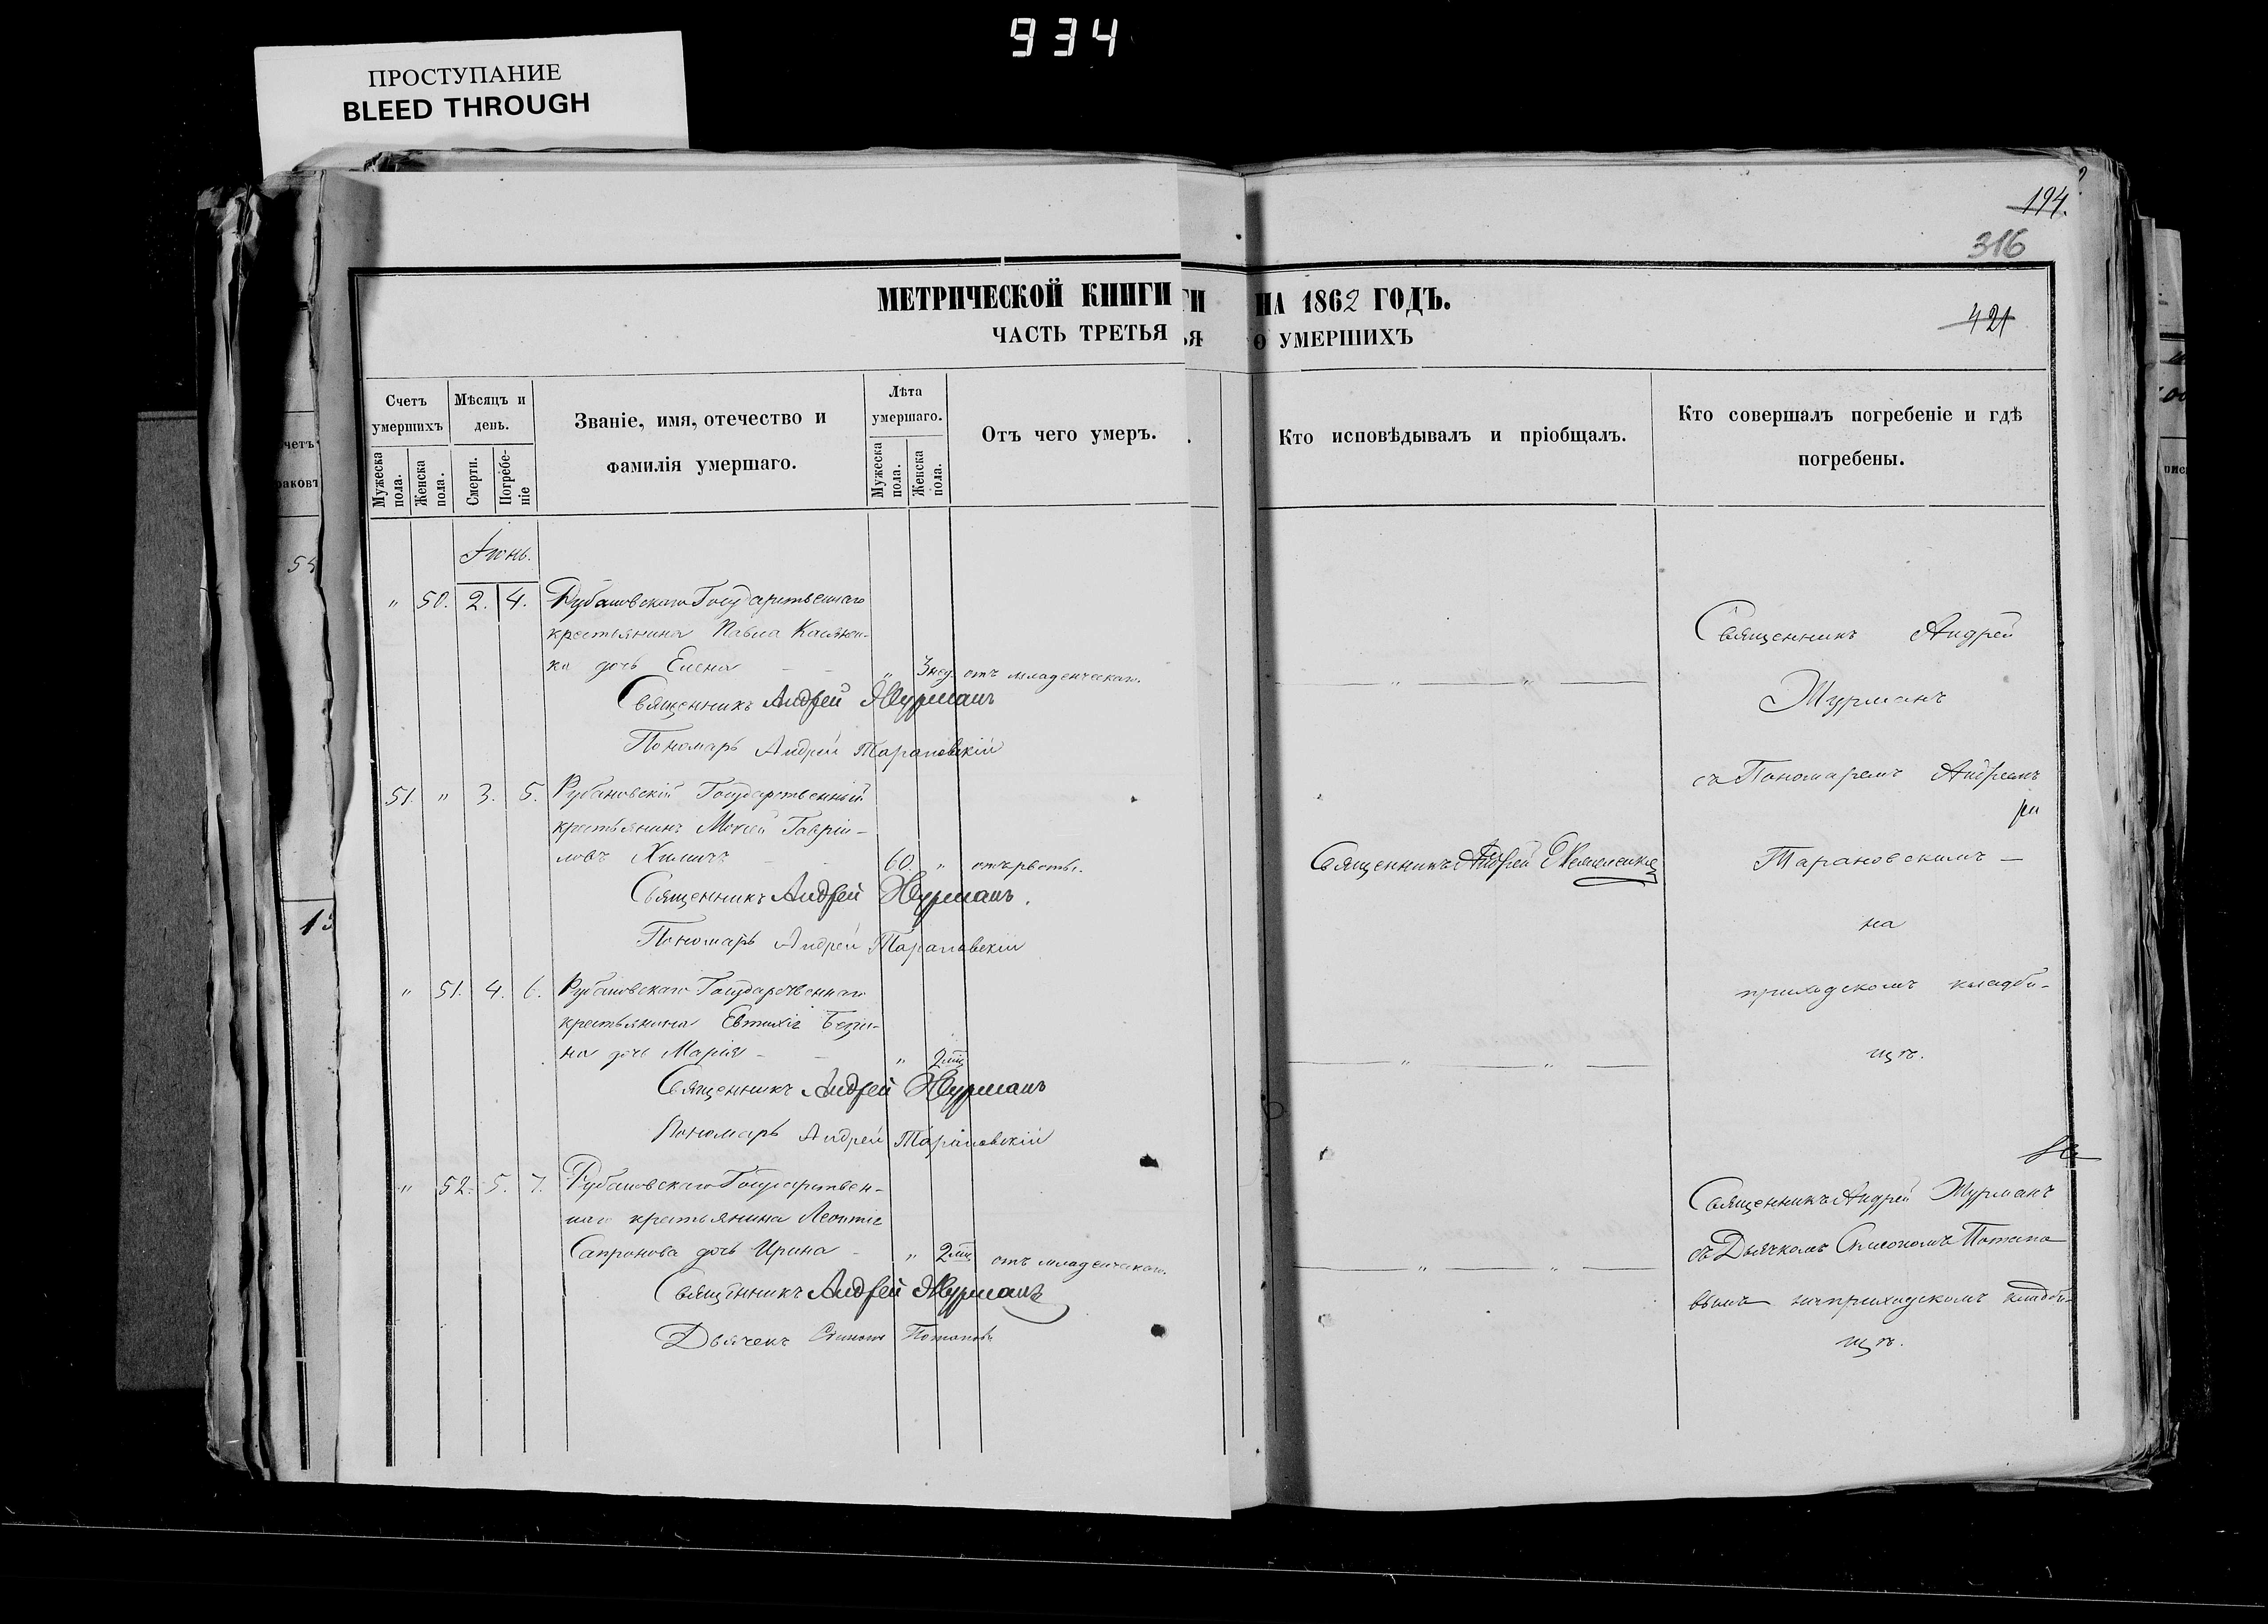 934
ПРОСТУПАНИЕ
BLEED THROUGH
194.
316
МЕТРИЧЕСКОЙ КНИГИ
ГИ НА 1862 ГОДЪ.
421
ЧАСТЬ ТРЕТЬЯ
ЬЯ О УМЕРШИХЪ
Счетъ умершихъ
Мѣсяцъ и день.
Званіе, имя, отечество и фамилія умершаго.
Лѣта умершаго.
Отъ чего умеръ.
Кто исповѣдывалъ и пріобщалъ.
Кто совершалъ погребеніе и гдѣ погребены.
Мужеска пола.
Женска пола.
Смерти.
Погребеніе
Мужеска пола.
Женска пола.
Іюнь.
" 50. 2. 4. Рубановскаго Государственнаго
крестьянина Павла
ка дочь Елена " 3 нед. отъ младенческаго.
Священникъ Андрей Журманъ
Пономарь Андрей Тарановскій
51. " 3. 5. Рубановскій Государственный
крестьянинъ Мокей Гаврі-
ловъ 60. " отъ рвоты.
Священникъ Андрей Журманъ.
Пономарь Андрей Тарановскій
" 51. 4. 6. Рубановскаго Государственнаго
крестьянина Евтихія
на дочь Марія " 2 мц
Священникъ Андрей Журманъ
Пономарь Андрей Тарановскій
" 52. 5. 7. Рубановскаго Государствен-
наго крестьянина Леонтія
Сапронова дочь Ирина " 2 мц отъ младенческаго.
Священникъ Андрей Журманъ
Дьячекъ Симеонъ Потаповъ
Священникъ Андрей
Священникъ Андрей
Журманъ
съ Пономаремъ Андреемъ
Тарановскимъ —
на
приходскомъ кладби-
щѣ.
Священникъ Андрей Журманъ
съ Дьячкомъ Симеономъ Потапо
вымъ на приходскомъ кладби-
щѣ.